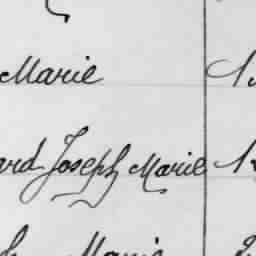 Marie
ard Joseph Marie
Marie